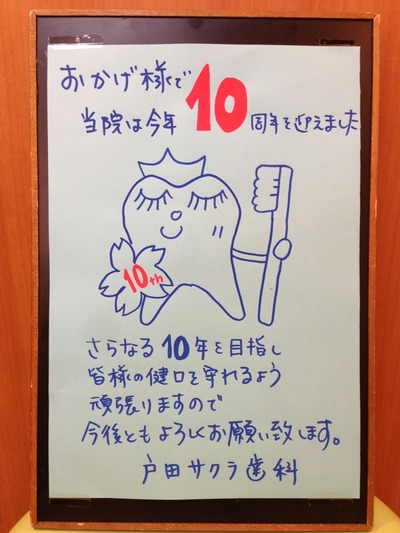 おかげ様で
当院は今年10周年を迎えました
10th
さらなる10年を目指し
皆様の健口を守れるよう
頑張りますので
今後ともよろしくお願い致します。
戸田サクラ歯科